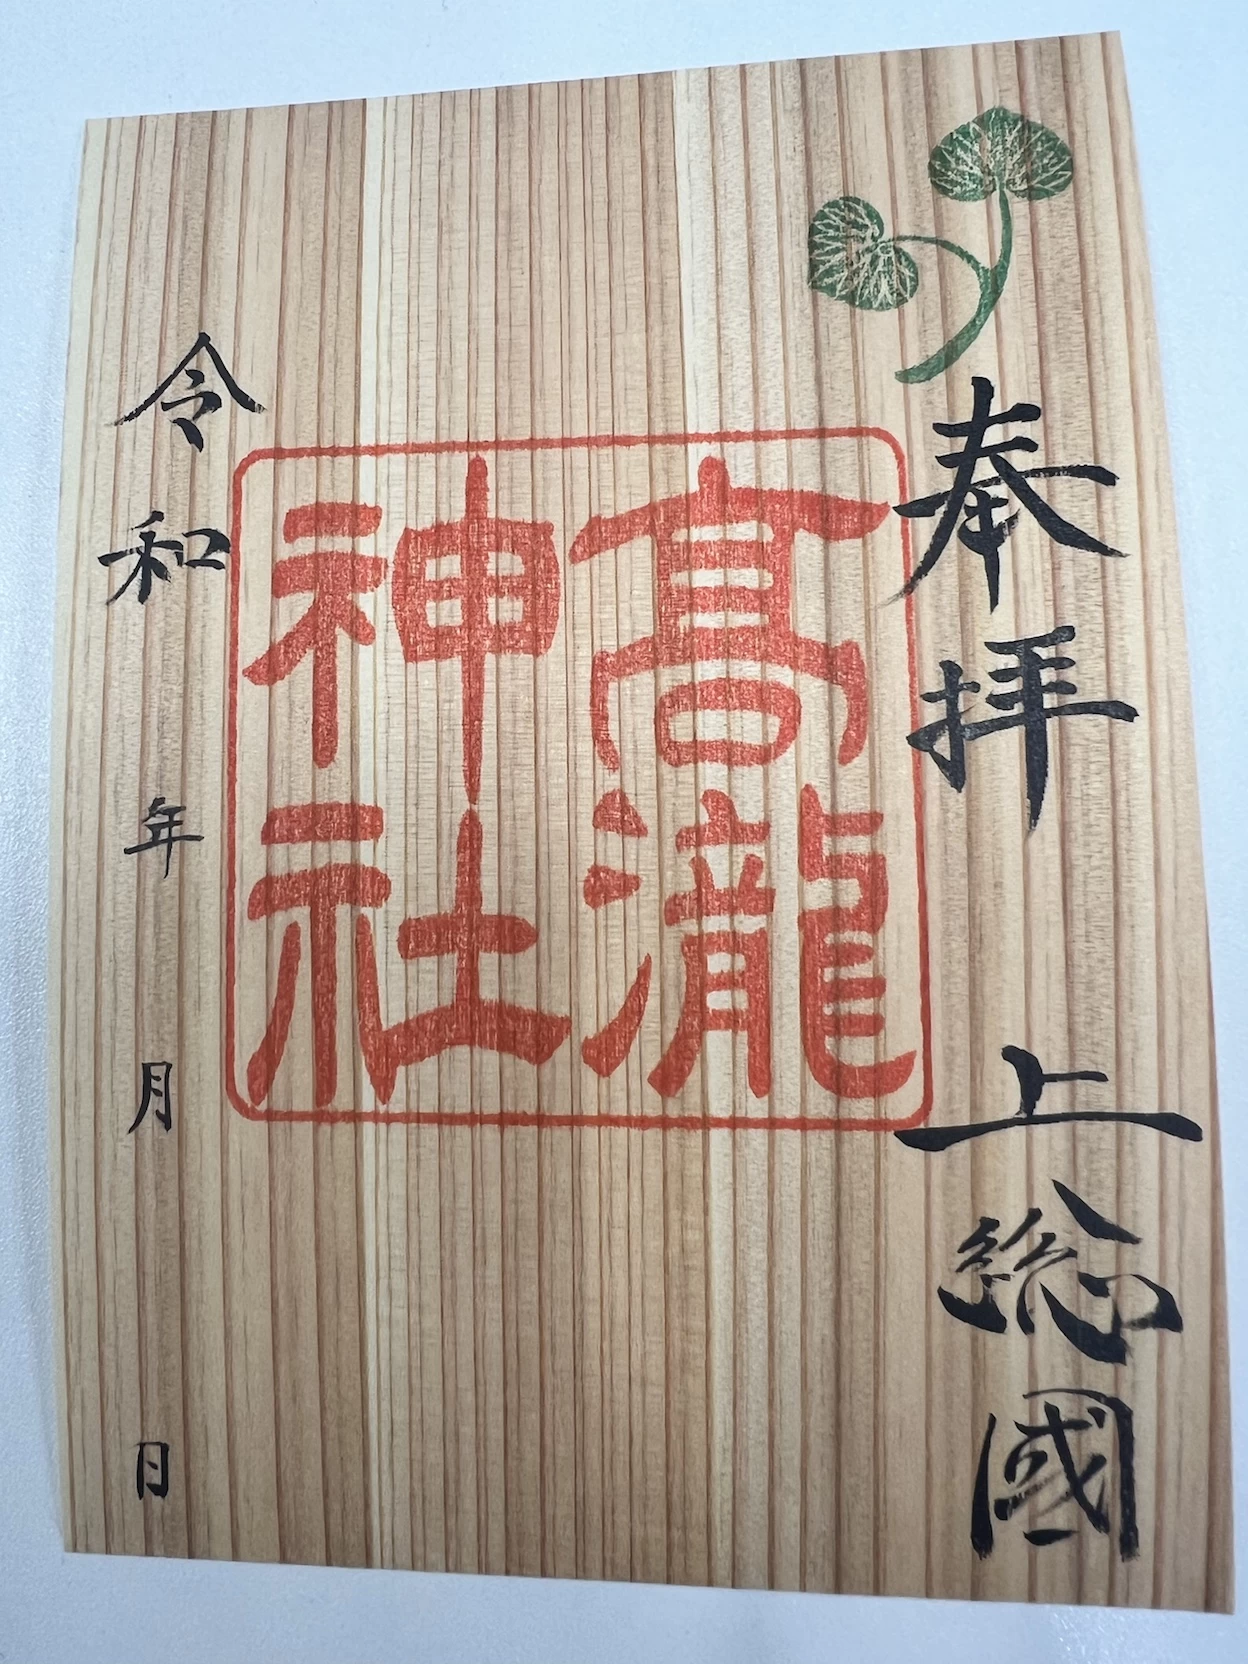 奉拝
上総國
高瀧
神社
令和 年 月 日